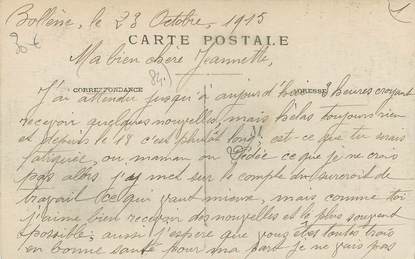 Bollène, le 23 Octobre, 1915
1
CARTE POSTALE
Ma bien chère Jeannette,
(84)
CORRESPONDANCE
ADRESSE
J'ai attendu jusqu'à aujourd'hui 3 heures croyant
recevoir quelques nouvelles, mais hélas toujours rien
et depuis le 18 c'est plutôt long!! est-ce que tu es
fatiguée, ou maman ou Dédée ce que je ne crois
pas alors j'ai mis sur le compte du surcroît de
travail ce qui vaut mieux, mais comme toi
j'aime bien recevoir des nouvelles et le plus souvent
possible; aussi j'espère que vous êtes toutes trois
en bonne santé pour ma part je ne vais pas